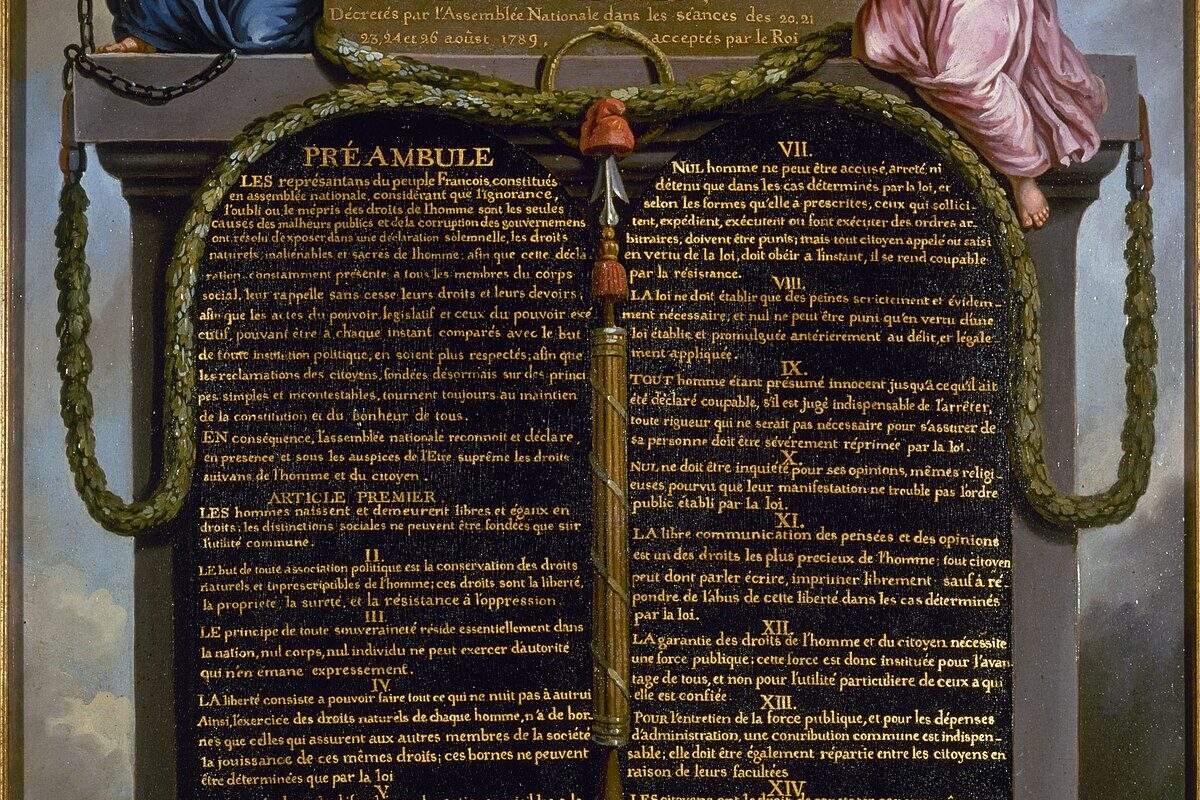 Décretés par l'Assemblée Nationale dans les séances des 20, 21
23, 24 et 26 aoûst 1789, acceptés par le Roi
PRÉAMBULE
LES représentans du peuple Francois, constitués
en assemblée nationale, considérant que l'ignorance,
l'oubli ou le mépris des droits de l'homme sont les seules
causes des malheurs publics et de la corruption des gouvernemens
ont résolu d'exposer dans une déclaration solemnelle, les droits
naturels, inaliénables et sacrés de l'homme: afin que cette décla
ration, constamment présente a tous les membres du corps
social, leur rappelle sans cesse leurs droits et leurs devoirs;
afin que les actes du pouvoir législatif et ceux du pouvoir exé
cutif, pouvant être a chaque instant comparés avec le but
de toute institution politique, en soient plus respectés; afin que
les reclamations des citoyens, fondées désormais sur des princi
pes simples et incontestables, tournent toujours au maintien
de la constitution et du bonheur de tous.
EN conséquence, l'assemblée nationale reconnoit et déclare,
en presence et sous les auspices de l'Etre suprême les droits
suivans de l'homme et du citoyen.
ARTICLE PREMIER.
LES hommes naissent et demeurent libres et égaux en
droits; les distinctions sociales ne peuvent être fondées que sur
l'utilité commune.
II.
LE but de toute association politique est la conservation des droits
naturels et inprescriptibles de l'homme; ces droits sont la liberté,
la propriété, la sureté, et la résistance à l'oppression.
III.
LE principe de toute souveraineté réside essentiellement dans
la nation, nul corps, nul individu ne peut exercer d'autorité
qui n'en émane expressement.
IV.
LA liberté consiste a pouvoir faire tout ce qui ne nuit pas à autrui
Ainsi, l'exercice des droits naturels de chaque homme, n'a de bor-
nes que celles qui assurent aux autres membres de la société
la jouissance de ces mêmes droits; ces bornes ne peuvent
être déterminées que par la loi
V.
VII.
NUL homme ne peut être accusé, arreté ni
détenu que dans les cas déterminés par la loi, et
selon les formes qu'elle à prescrites, ceux qui sollici-
tent, expédient, exécutent ou font exécuter des ordres ar-
bitraires, doivent être punis; mais tout citoyen appelé ou saisi
en vertu de la loi, doit obéir a l'instant, il se rend coupable
par la résistance.
VIII.
LA loi ne doit établir que des peines strictement et évidem-
ment nécessaire, et nul ne peut être puni qu'en vertu d'une
loi établie et promulguée antérierement au délit, et légale-
ment appliquée.
IX.
TOUT homme étant présumé innocent jusqu'a ce qu'il ait
été déclaré coupable, s'il est jugé indispensable de l'arrêter,
toute rigueur qui ne serait pas nécessaire pour s'assurer de
sa personne doit être sévèrement réprimée par la loi.
X.
NUL ne doit être inquiété pour ses opinions, mêmes religi
euses, pourvu que leur manifestation ne trouble pas l'ordre
public établi par la loi.
XI.
LA libre communication des pensées et des opinions
est un des droits les plus precieux de l'homme: tout citoyen
peut dont parler écrire, imprimer librement: sauf à ré
pondre de l'abus de cette liberté dans les cas déterminés
par la loi.
XII.
LA garantie des droits de l'homme et du citoyen nécessite
une force publique; cette force est donc instituée pour l'avan
tage de tous, et non pour l'utilité particuliere de ceux a qui
elle est confiée.
XIII.
POUR l'entretien de la force publique, et pour les dépenses
d'administration, une contribution commune est indispen-
sable; elle doit être également répartie entre les citoyens en
raison de leurs facultées
XIV.